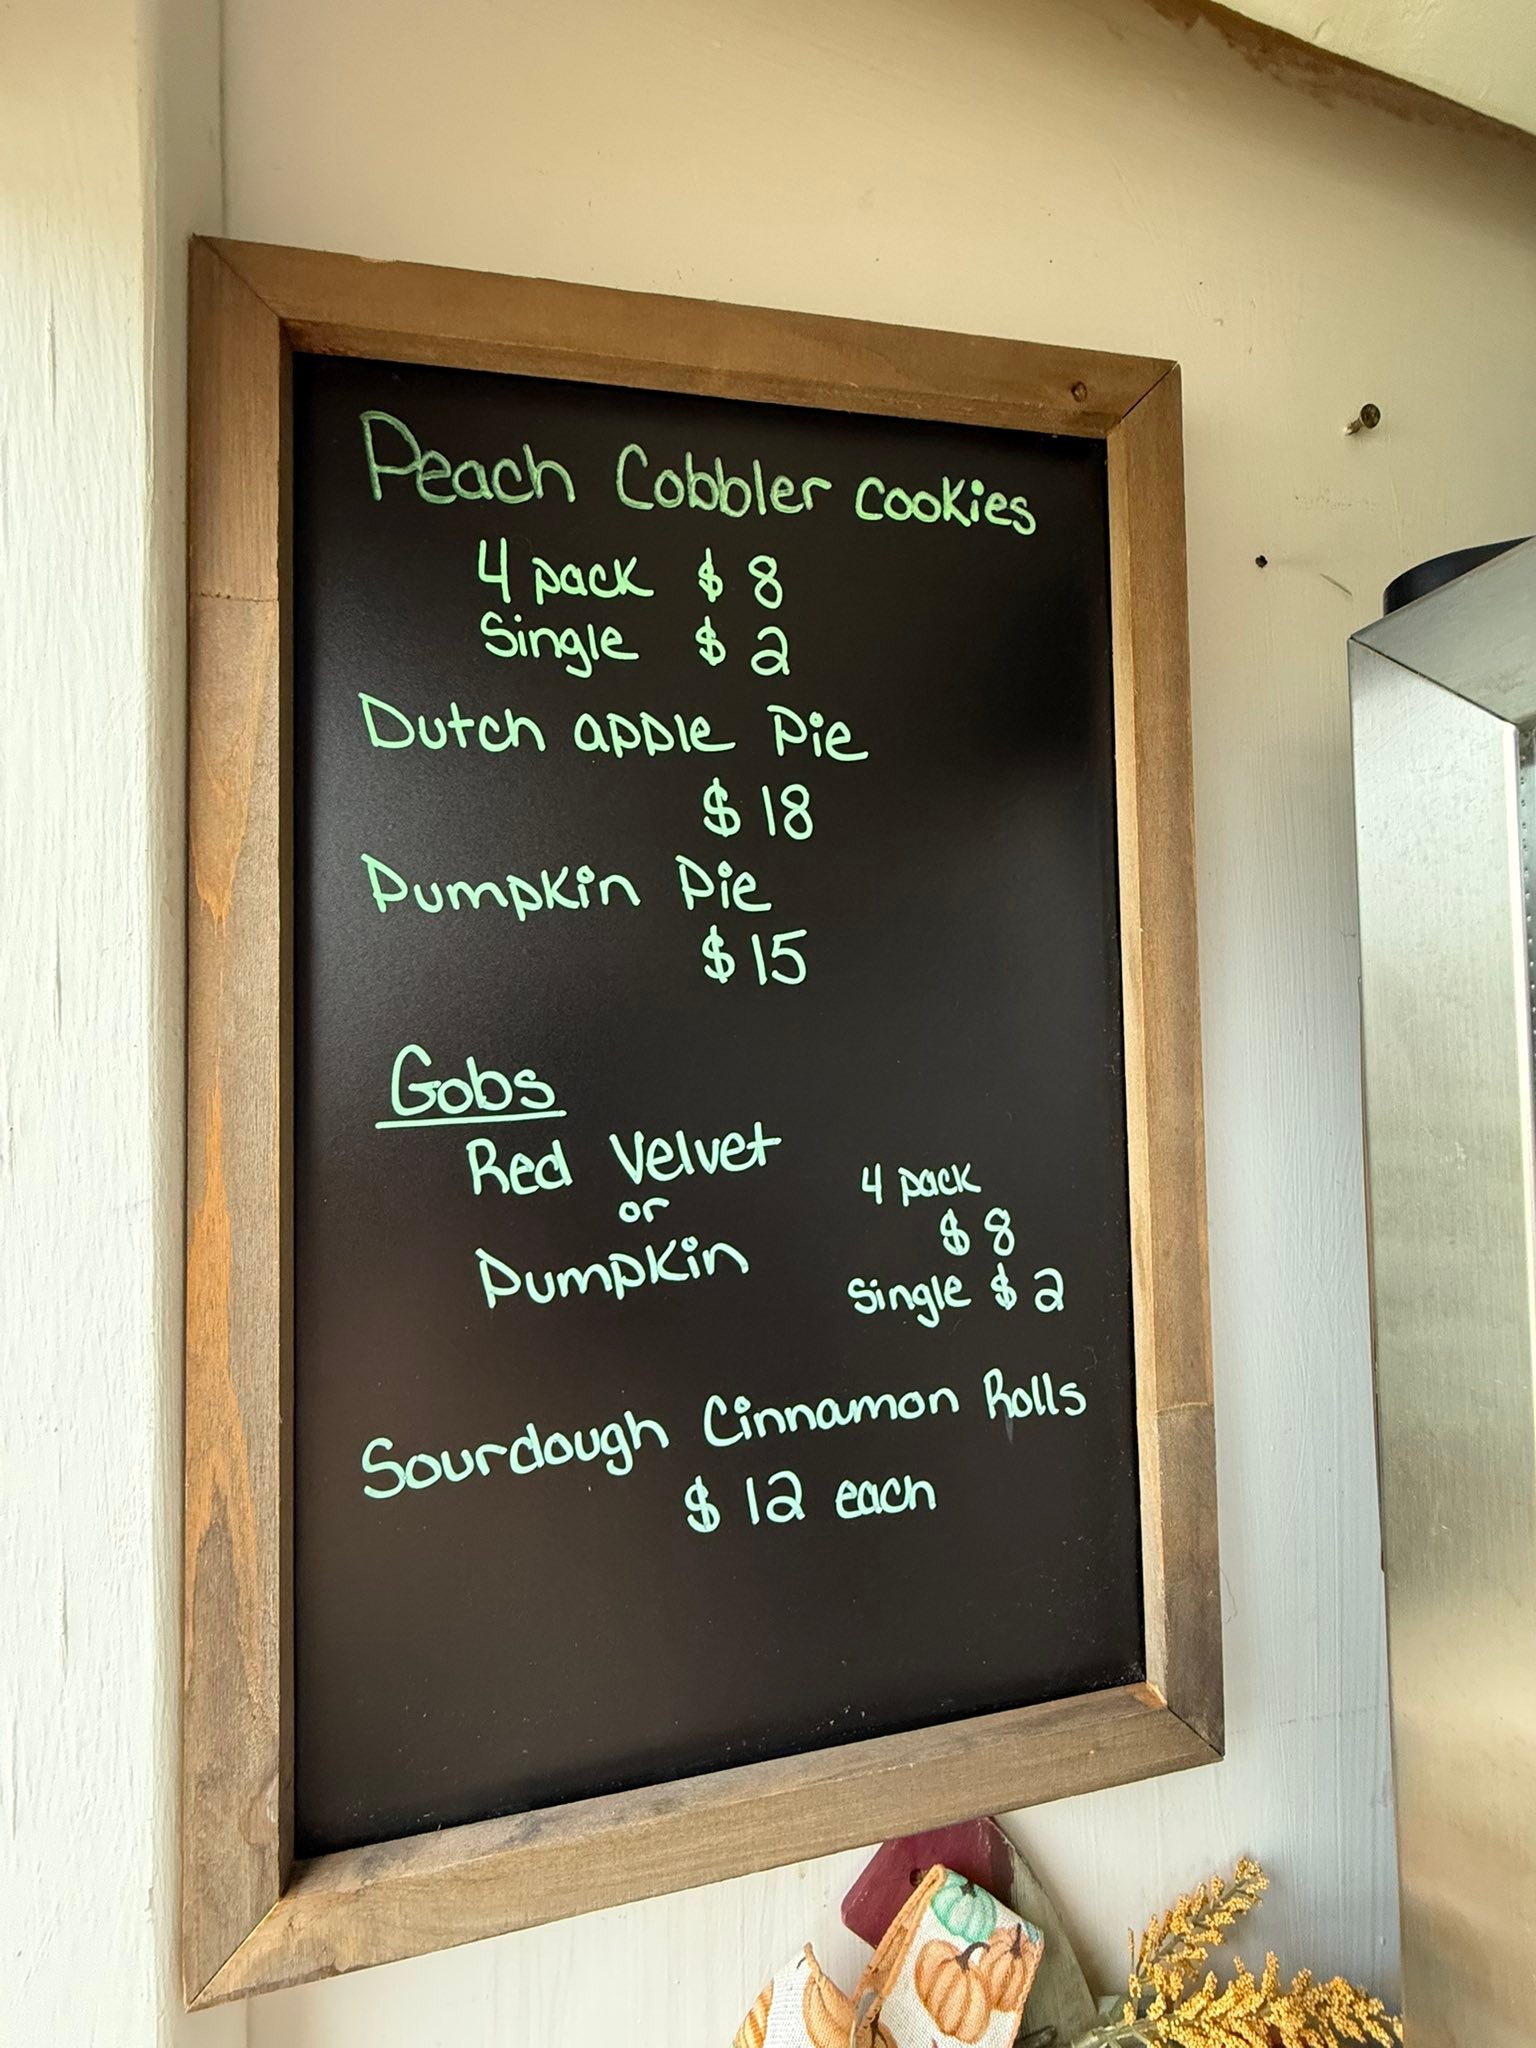 Peach Cobbler cookies
4 pack $ 8
Single $ 2
Dutch apple Pie
$ 18
Pumpkin Pie
$ 15
Gobs
Red Velvet
or
Pumpkin
4 pack
$ 8
Single $ 2
Sourdough Cinnamon Rolls
$ 12 each